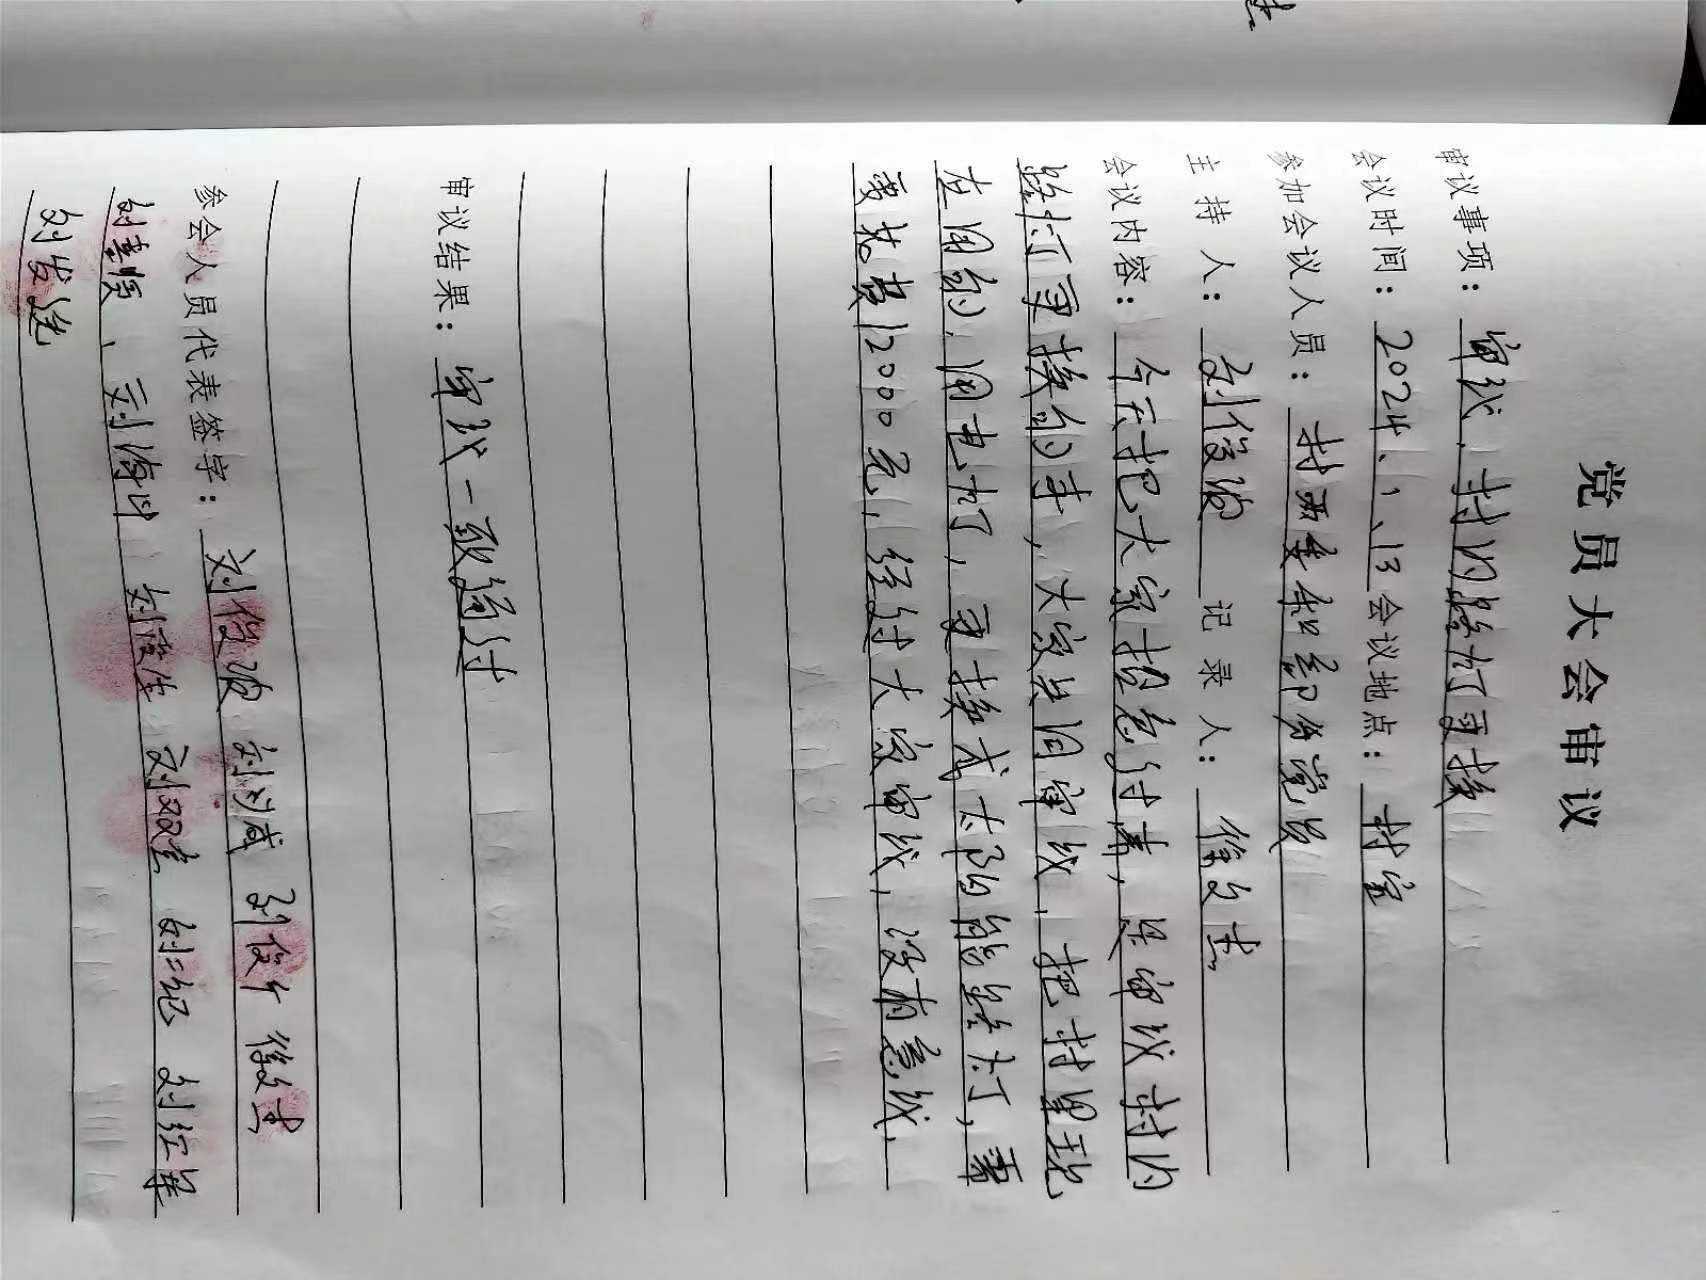 党员大会审议
审议事项：审议、村内路灯更换
会议时间：2024、1、13会议地点：村室
参加会议人员：村两委和部分党员
主持人：刘俊波 记录人：徐文志
会议内容：今天把大家招急过来，是审议村内
路灯更换的事，大家共同审议，把村里现
在用的，用电灯，更换成太阳能路灯，需
要花费12000元，经过大家审议，没有意议，
审议结果：审议一致通过
参会人员代表签字：刘俊波 刘 俊 徐文志
刘 、刘海 刘 生 刘双 刘 刘红军
刘发选